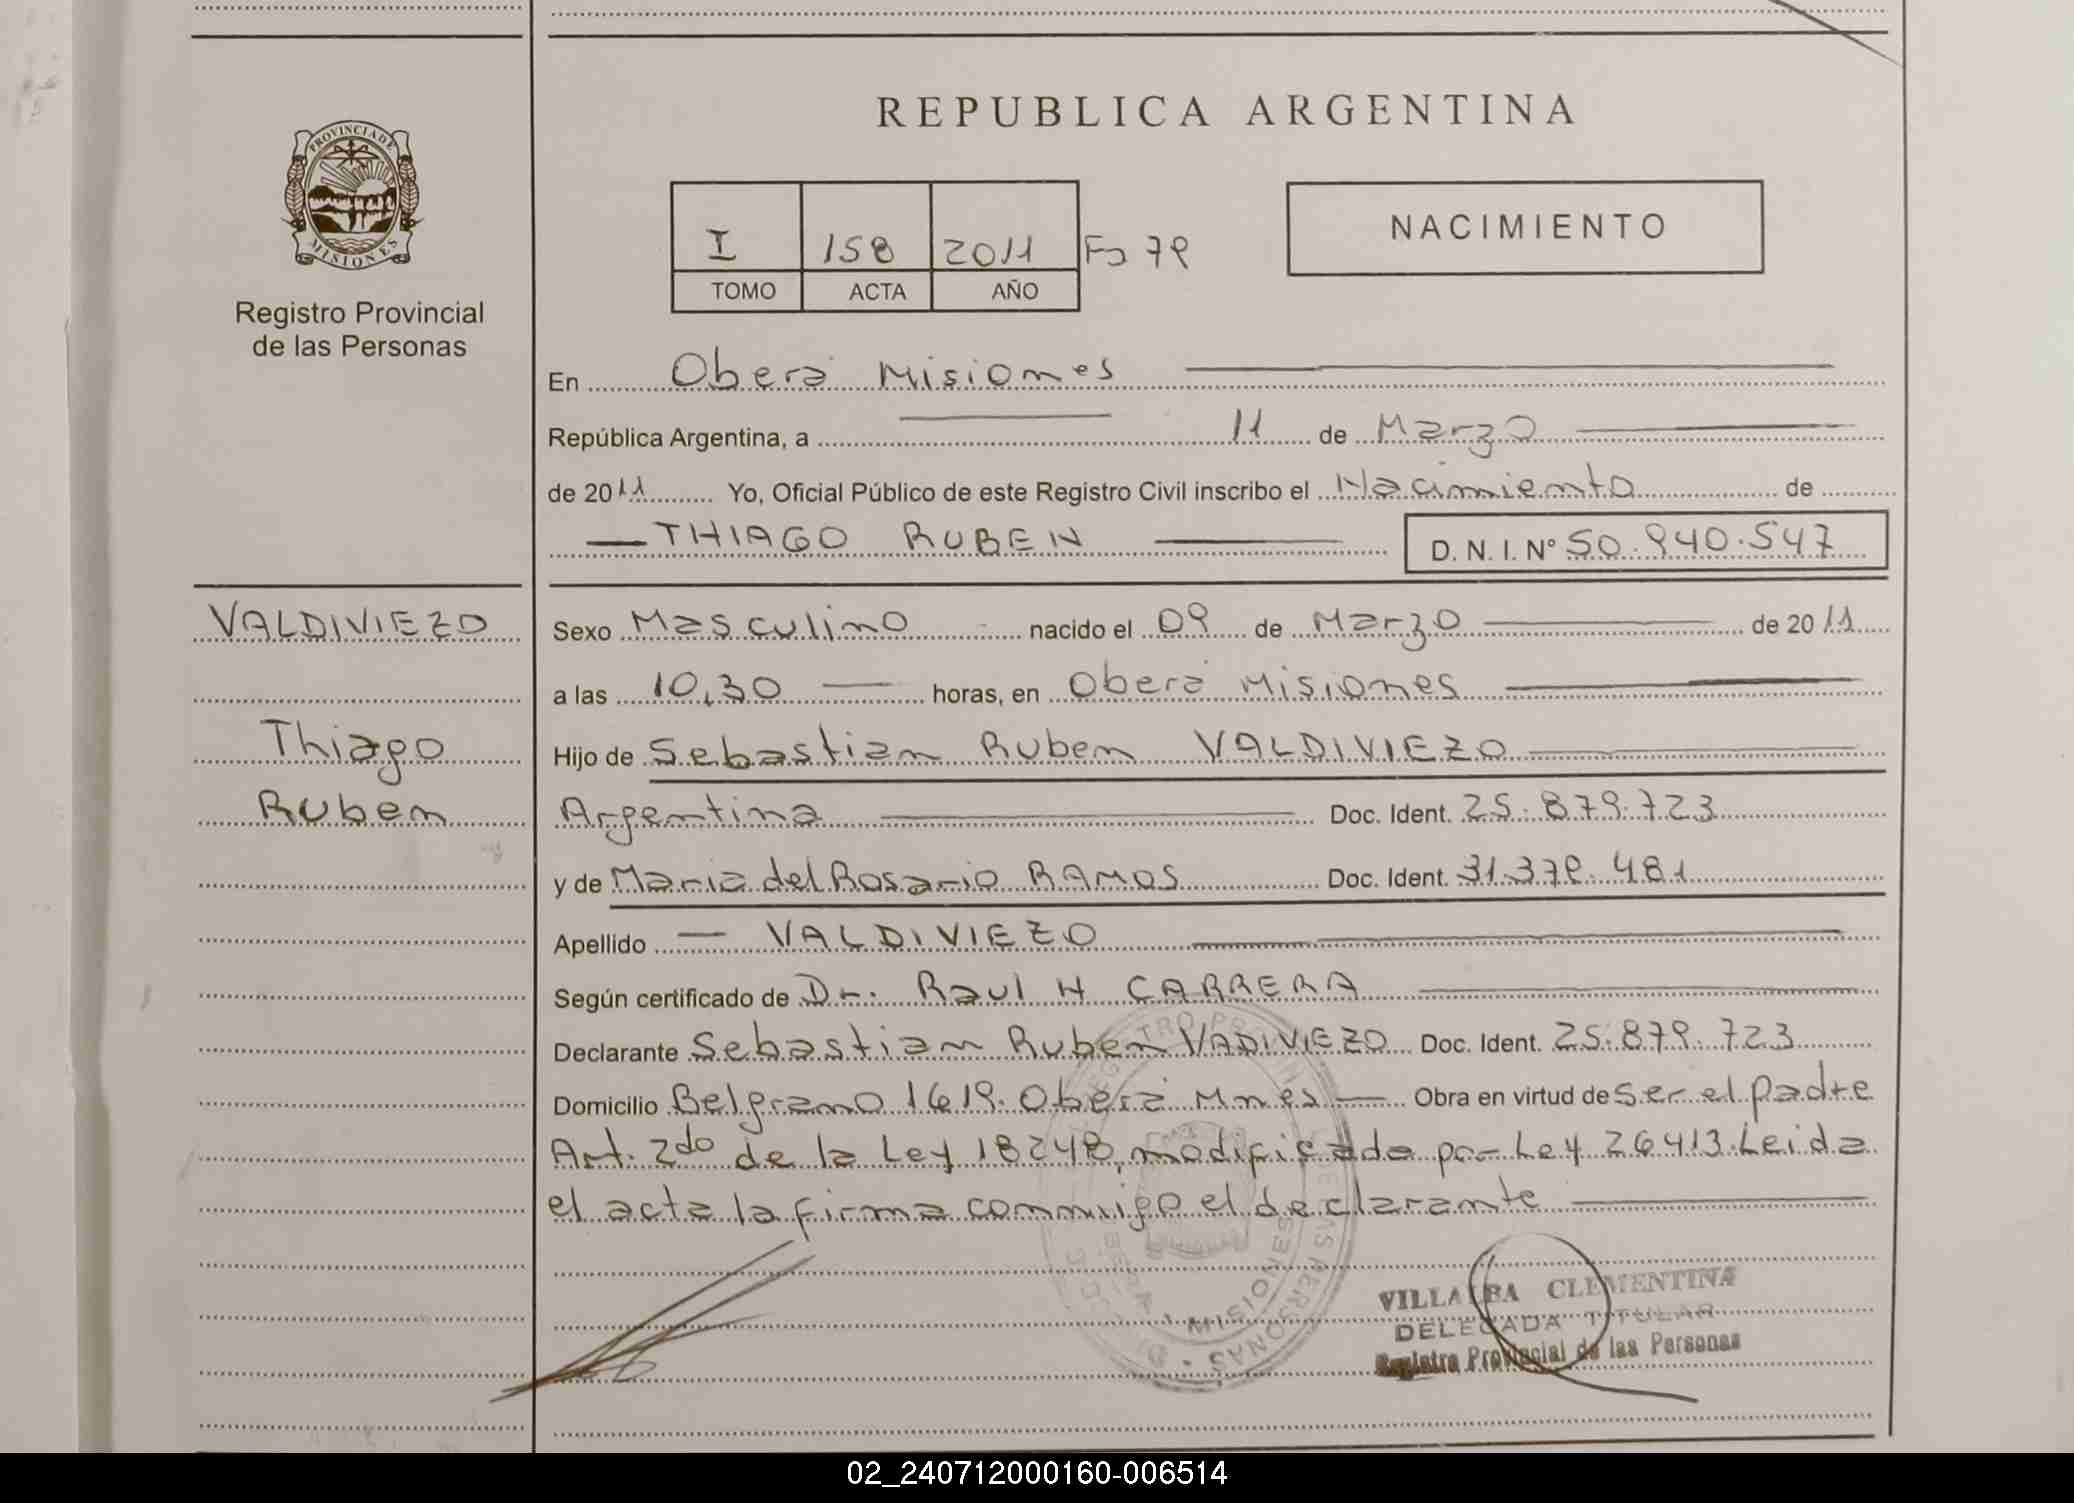 REPUBLICA ARGENTINA
PROVINCIA DE
MISIONES
Registro Provincial
de las Personas
I 158 2011 Fo 79
TOMO ACTA AÑO
NACIMIENTO
En Oberá Misiones
República Argentina, a 11 de Marzo
de 2011 Yo, Oficial Público de este Registro Civil inscribo el Nacimiento de
THIAGO RUBEN D. N. I. Nº 50.940.547
VALDIVIEZO
Thiago
Ruben
Sexo Masculino nacido el 09 de Marzo de 2011
a las 10,30 horas, en Oberá Misiones
Hijo de Sebastian Ruben VALDIVIEZO
Argentina Doc. Ident. 25.879.723
y de Maria del Rosario RAMOS Doc. Ident. 31.379.481
Apellido VALDIVIEZO
Según certificado de Dr. Raul H CARRERA
Declarante Sebastian Ruben VADIVIEZO Doc. Ident. 25.879.723
Domicilio Belgrano 1619. Oberá Mnes Obra en virtud de Ser el padre
Art. 2do de la Ley 18248, modificada por Ley 26413. Leida
el acta la firma conmigo el declarante
VILLALBA CLEMENTINA
DELEGADA TITULAR
Registro Provincial de las Personas
MISIONES
02_240712000160-006514